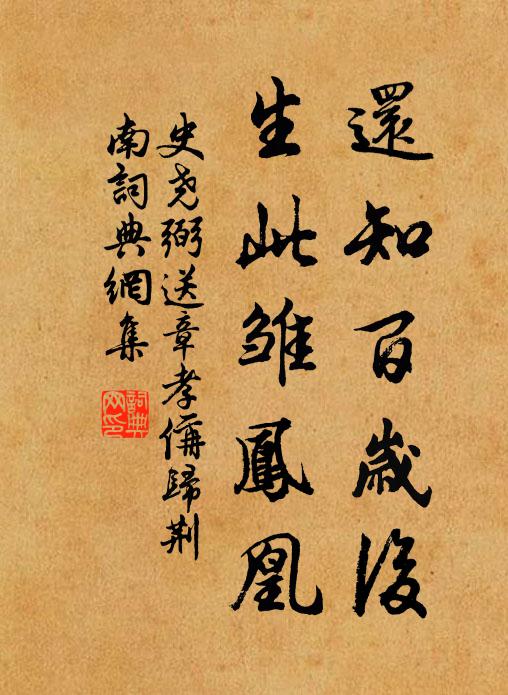 還知百歲後
生此雏鳳凰
史堯弼送章孝儒歸荆
南詞典網集
詞典
网印